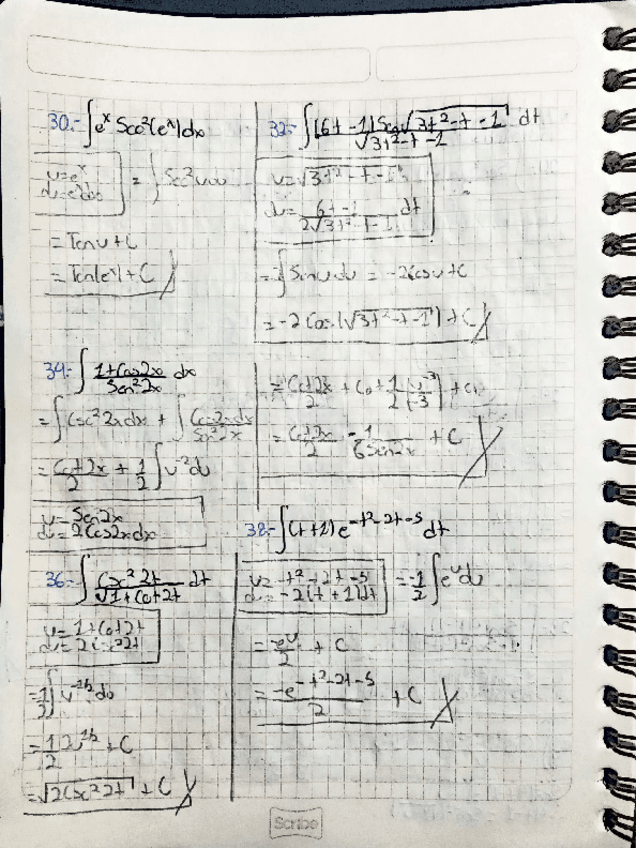 30.- ∫e^x Sec²(e^x)dx
u=e^x
du=e^x dx
= ∫Sec²u du
= Tan u + C
= Tan(e^x) + C
32.- ∫(6t-1)Sen√(3t²-t-1) / √(3t²-t-1) dt
u=√(3t²-t-1)
du= (6t-1) / (2√(3t²-t-1)) dt
∫Sen u du = -2Cos u + C
= -2 Cos(√(3t²-t-1)) + C
34.- ∫ (1+Cos2x) / (Sen²2x) dx
= ∫Csc²2x dx + ∫ (Cos2x dx) / (Sen²2x)
= Cot2x/2 + 1/2 ∫u^-2 du
u=Sen2x
du=2Cos2x dx
= Cot2x/2 + Co + 1/2 (u^-3 / -3) + C₁
= Cot2x/2 - 1/(6Sen2x) + C
36.- ∫ Csc²2t / √(1+Cot2t) dt
u= 1+Cot2t
du= 2Csc²2t
= 1/2 ∫u^-1/2 du
= 1/2 2u^1/2 + C
= √(2Csc²2t) + C
38.- ∫(t+1)e^(-t²-2t-5) dt
u=-t²-2t-5
du=-2(t+1)dt
= -1/2 ∫e^u du
= -e^u/2 + C
= -e^(-t²-2t-5) / 2 + C
Scribe